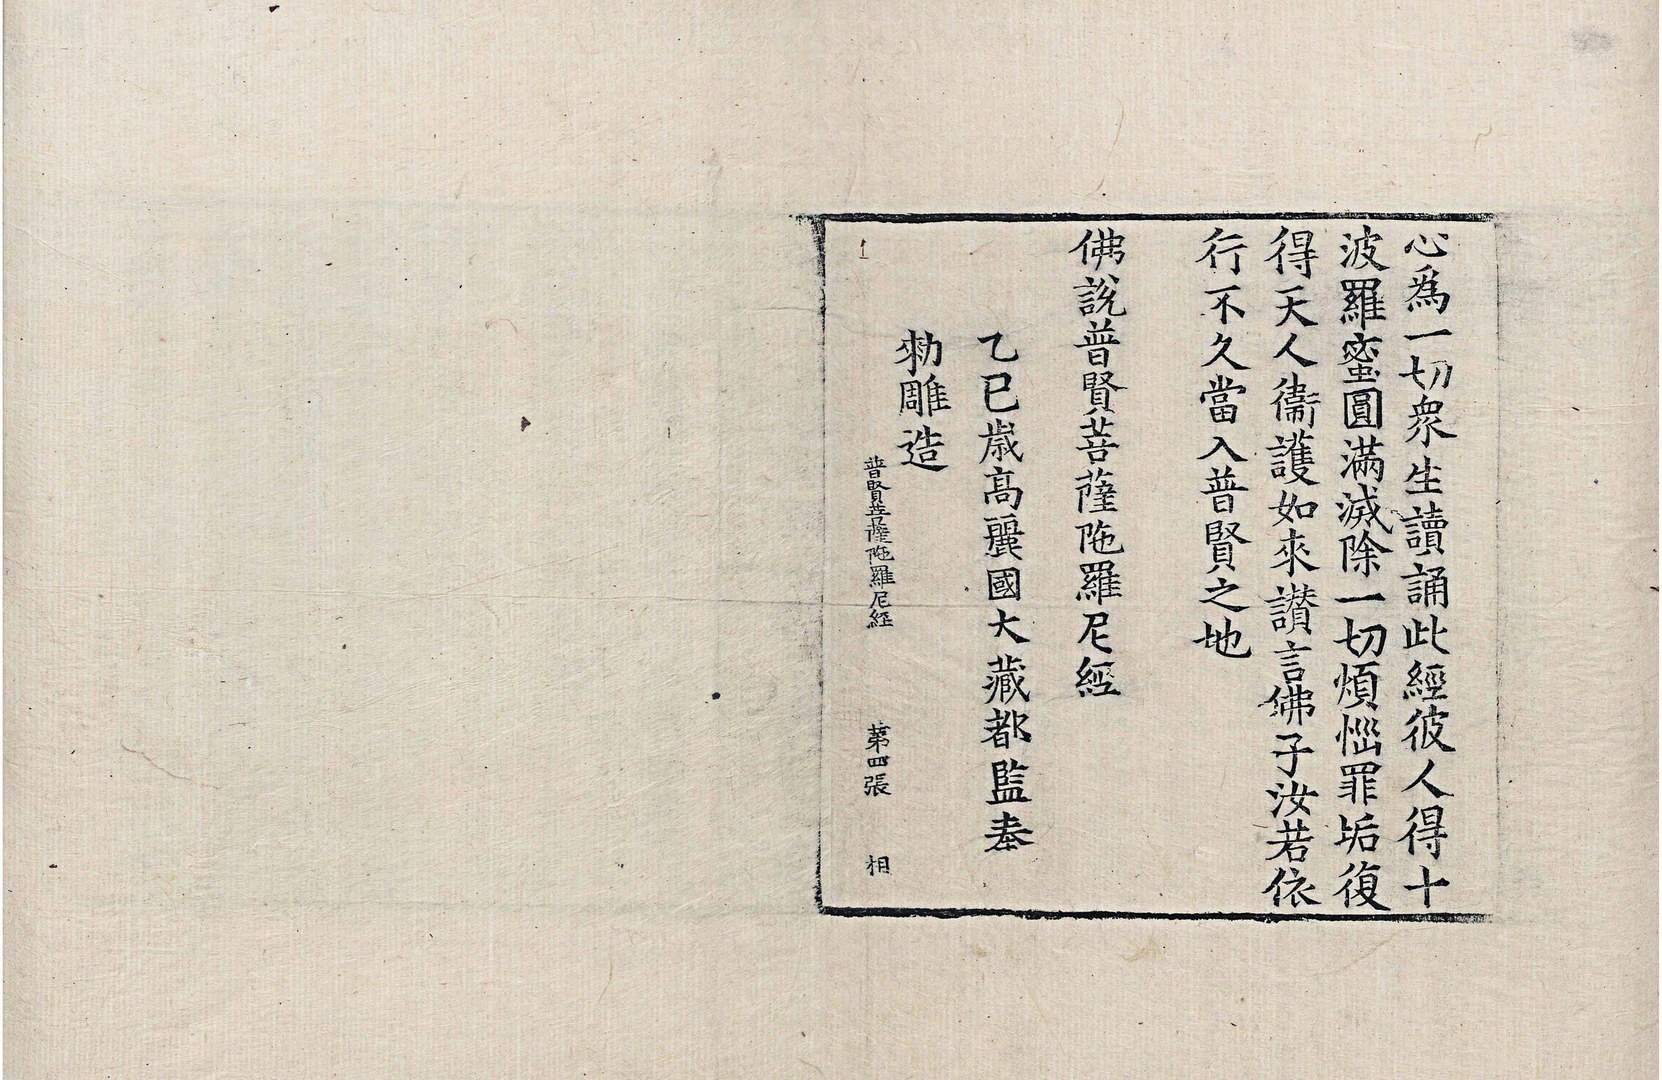 心爲一切衆生讀誦此經彼人得十
波羅蜜圓滿滅除一切煩惱罪垢復
得天人衞護如來讃言佛子汝若依
行不久當入普賢之地
佛說普賢菩薩陁羅尼經
乙巳歲高麗國大藏都監奉
勑雕造
普賢菩薩陁羅尼經 第四張 相